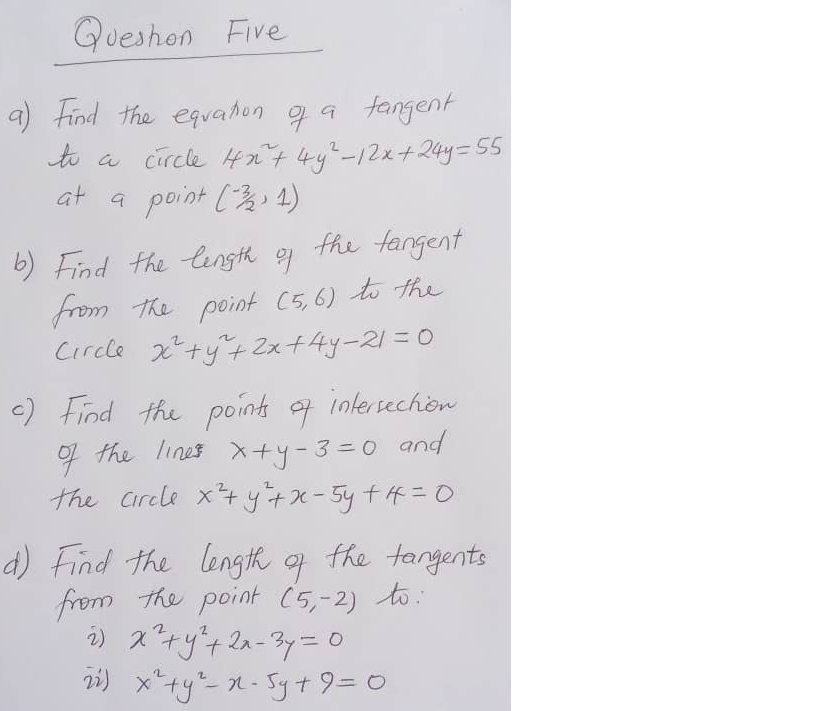 Question Five
a) Find the equation of a tangent
to a circle 4x²+ 4y²-12x+24y=55
at a point (-3/2, 1)
b) Find the length of the tangent
from the point (5,6) to the
Circle x²+y²+2x+4y-21=0
c) Find the points of intersection
of the lines x+y-3=0 and
the circle x²+y²+x-5y+4=0
d) Find the length of the tangents
from the point (5,-2) to:
i) x²+y²+2x-3y=0
ii) x²+y²-x-5y+9=0